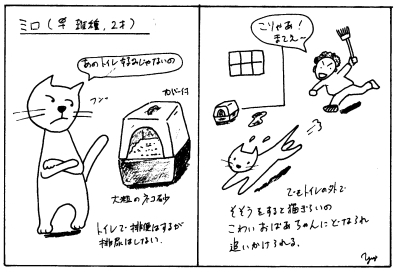 ミロ(早、雑種、2才)
あのトイレ するみじゃないの
フン〜
カバー付
大粒のネコ砂
トイレで排便はするが
排尿はしない.
こりゃあ!
まてえ〜
でもトイレの外で
そそうをすると猫ぎらいの
こわいおばあちゃんにどなられ
追いかけられる.